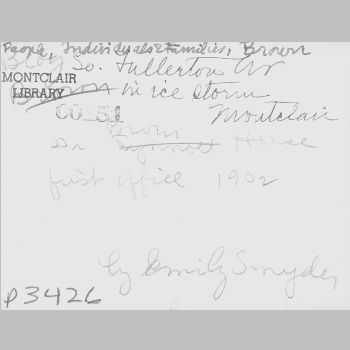 People, Individuals & Families, Brown
Bldg So. Fullerton Av
MONTCLAIR
LIBRARY
in ice storm
00151
Montclair
Brown
Dr House
first office 1902
by Emily Snyder
p3426